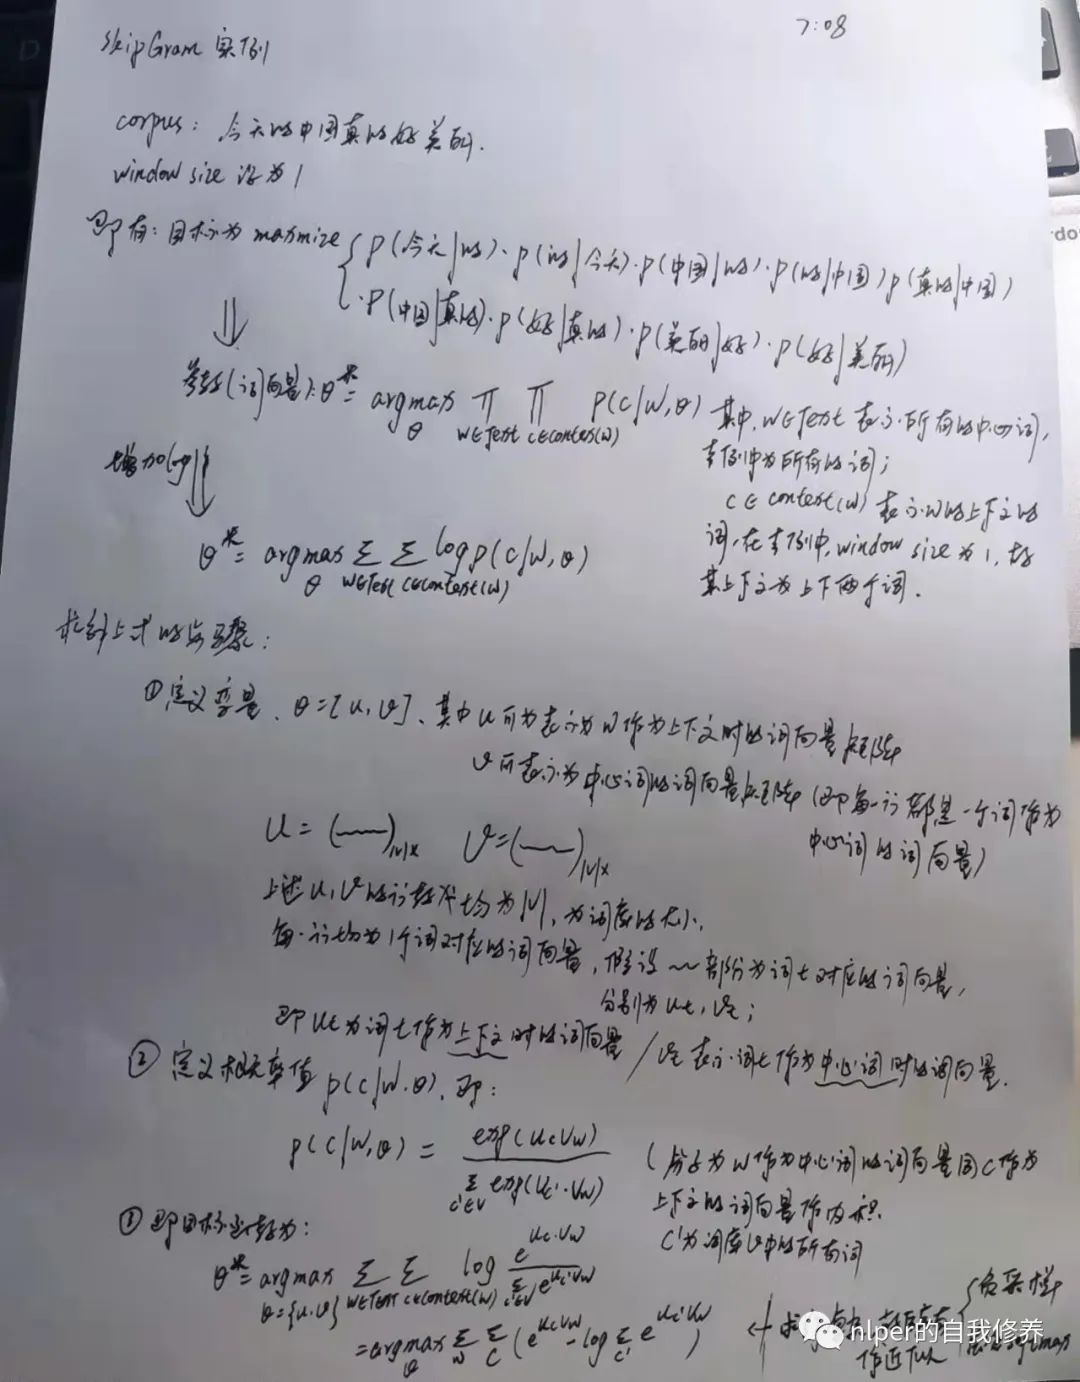 7:08
SkipGram 实例
corpus: 今天的中国真的好美丽.
window size 设为1
即有: 目标为 maxmize { p(今天|的)·p(的|今天)·p(中国|的)·p(的|中国)p(真的|中国)
·p(中国|真的)·p(好|真的)·p(美丽|好)·p(好|美丽)
⇓
参数(词向量): θ* = argmax_θ ∏_{w∈Text} ∏_{c∈context(w)} p(c|w,θ) 其中, w∈Text 表示所有的中心词,
本例中为所有的词;
增加log ⇓
c∈context(w) 表示w的上下文的
词, 在本例中, window size 为1, 故
其上下文为上下两个词.
θ* = argmax_θ Σ_{w∈Text} Σ_{c∈context(w)} log p(c|w,θ)
求解上式的步骤:
① 定义变量、θ=[u,v]、其中u可为表示为w作为上下文时的词向量矩阵
v可表示为中心词的词向量矩阵 (即每一行都是一个词作为
中心词的词向量)
U = (﹏)_{|V|×} V = (﹏)_{|V|×}
上述u,v的行数均为|V|, 为词库的大小.
每一行均为1个词对应的词向量, 假设 ~ 部分为词t对应的词向量,
分别为ut, vt;
即ut为词t作为上下文时的词向量 / vt表示词t作为中心词时的词向量.
② 定义概率值 p(c|w.θ), 即:
p(c|w,θ) = exp(uc vw) / Σ_{c'∈V} exp(uc'·vw) (分子为w作为中心词的词向量同c作为
上下文的词向量作内积.
c'为词库v中的所有词
③ 即目标函数为:
θ* = argmax_{θ={u.v}} Σ_{w∈Text} Σ_{c∈context(w)} log e^{uc·vw} / Σ_{c'∈V} e^{uc'vw}
= argmax_θ Σ_w Σ_c (e^{uc vw} - log Σ_{c'} e^{uc'vw}) ←
作近似 { 负采样
softmax
nlper的自我修养